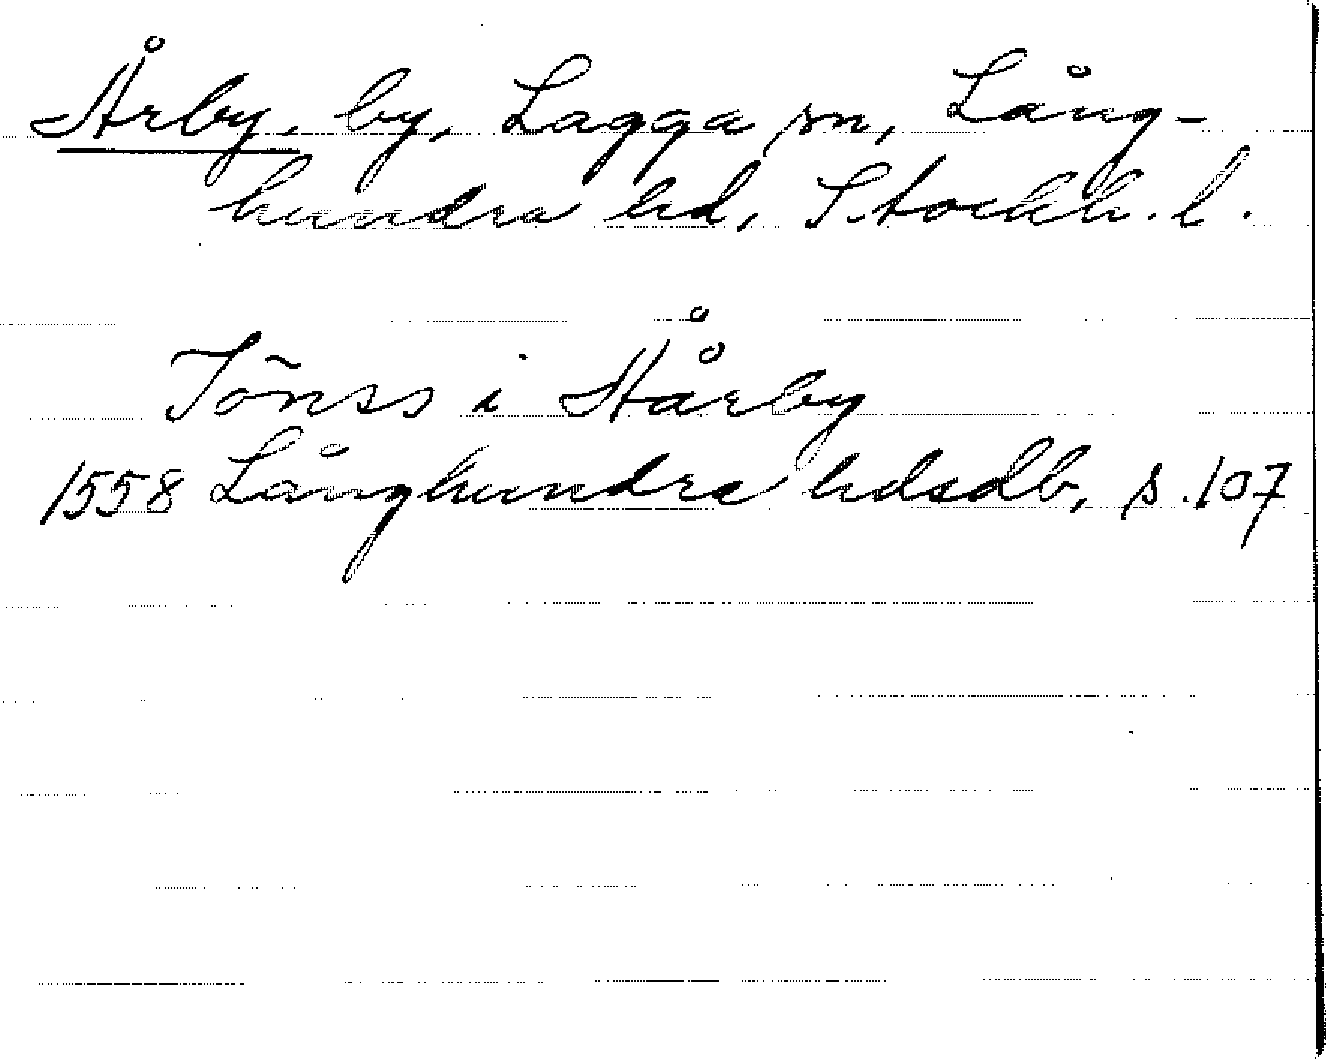 Årby, by, Lagga sn, Lång-
hundra hd, Stockh. l.
Jõnss i Åårby
1558 Långhundra hdsdb, s. 107